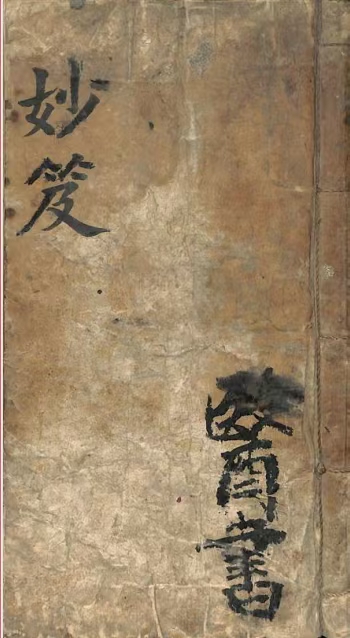 妙笈
醫書